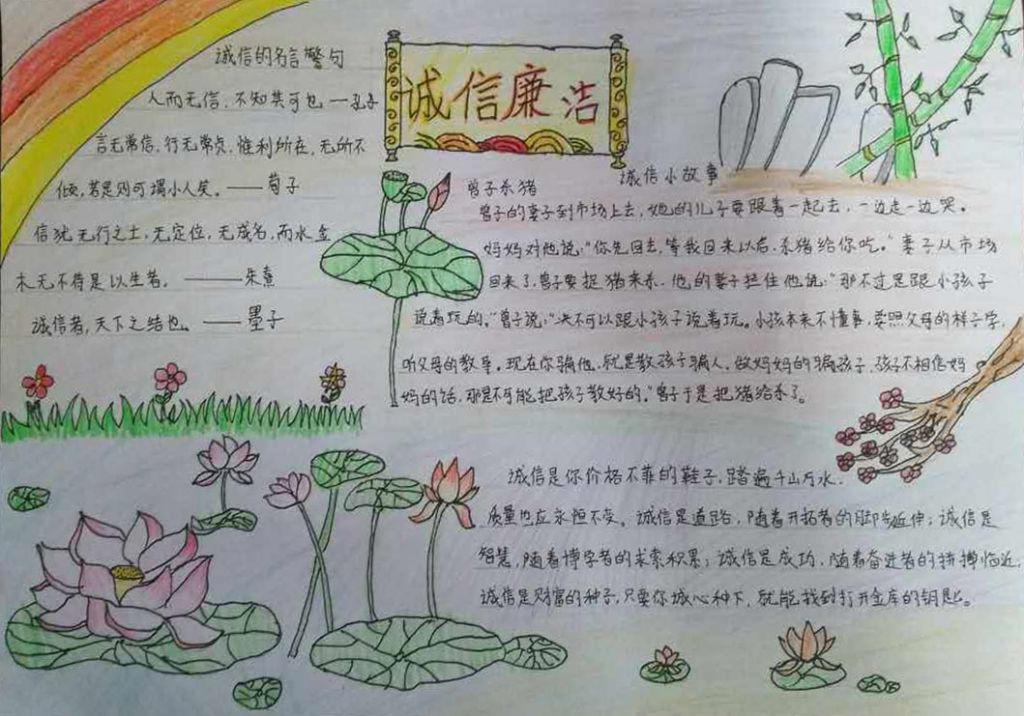 诚信廉洁
诚信的名言警句
人而无信，不知其可也 —孔子
言无常信，行无常贞，惟利所在，无所不
倾，若是则可谓小人矣。——荀子
信犹五行之土，无定位，无成名，而水金
木无不待是以生者。——朱熹
诚信者，天下之结也。——墨子
诚信小故事
曾子杀猪
曾子的妻子到市场上去，她的儿子要跟着一起去，一边走一边哭。
妈妈对他说："你先回去，等我回来以后，杀猪给你吃。"妻子从市场
回来了，曾子要捉猪来杀，他的妻子拦住他说："那不过是跟小孩子
说着玩的。"曾子说："决不可以跟小孩子说着玩。小孩本来不懂事，要照父母的样子学，
听父母的教导。现在你骗他，就是教孩子骗人。做妈妈的骗孩子，孩子不相信妈
妈的话，那是不可能把孩子教好的。"曾子于是把猪给杀了。
诚信是你价格不菲的鞋子，踏遍千山万水，
质量也应永恒不变。诚信是道路，随着开拓者的脚步延伸；诚信是
智慧，随着博学者的求索积累；诚信是成功，随着奋进者的拼搏临近。
诚信是财富的种子，只要你诚心种下，就能找到打开金库的钥匙。